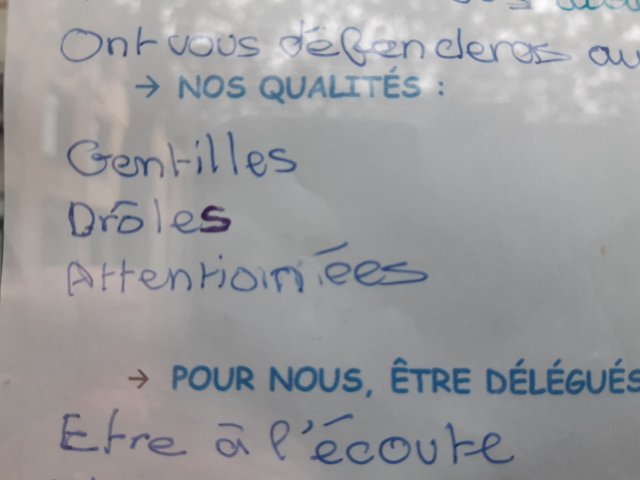 Ont vous défenderas au
→ NOS QUALITÉS :
Gentilles
Drôles
Attentionnées
→ POUR NOUS, ÊTRE DÉLÉGUÉS
Etre à l'écoute